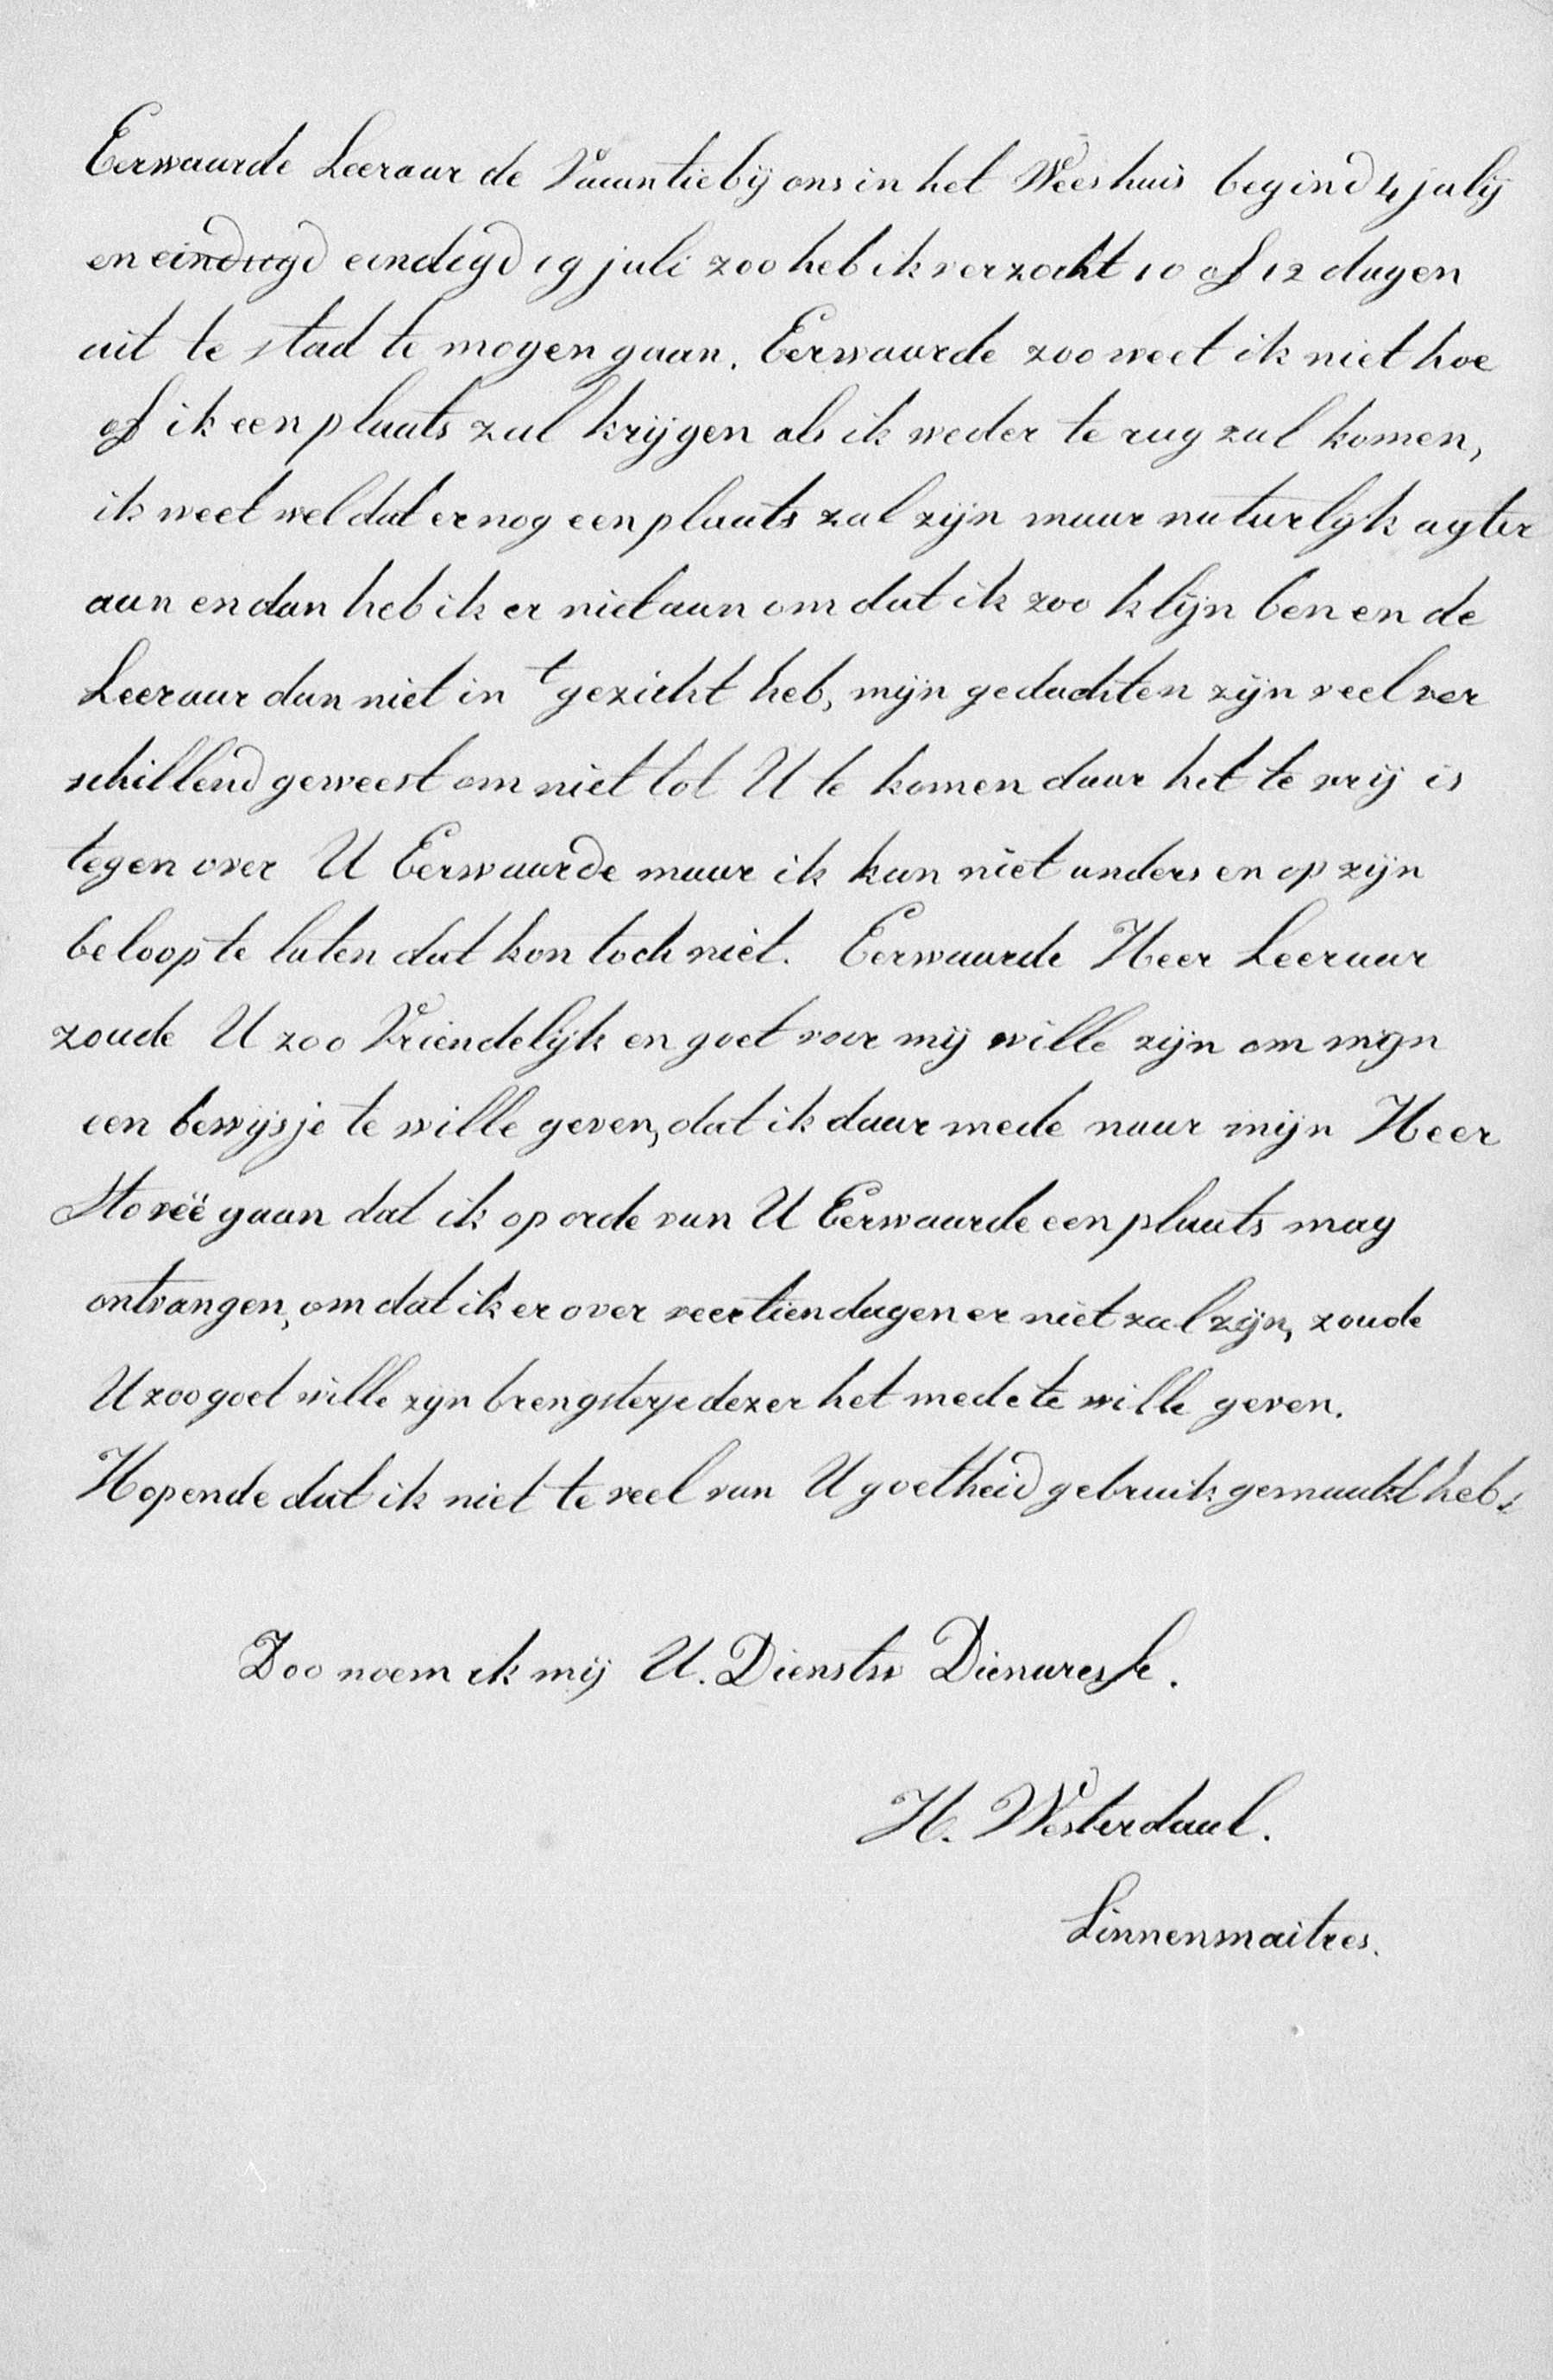 Eerwaarde Leeraar de Vacantie bij ons in het Weeshuis begind 4 julij
en eindigd eindigd 19 juli zoo heb ik verzocht 10 of 12 dagen
uit te stad te mogen gaan. Eerwaarde zoo weet ik niet hoe
of ik een plaats zal krijgen als ik weder te rug zal komen,
ik weet wel dat er nog een plaats zal zijn maar naturlijk agter
aan en dan heb ik er niet aan om dat ik zoo klijn ben en de
Leeraar dan niet in t gezicht heb, mijn gedachten zijn veel ver
schillend geweest om niet tot U te komen daar het te vrij is
tegen over U Eerwaarde maar ik kan niet anders en op zijn
beloop te laten dat kon toch niet. Eerwaarde Heer Leeraar
zoude U zoo Vriendelijk en goet voor mij wille zijn om mijn
een bewijsje te wille geven, dat ik daar mede naar mijn Heer
Stoveë gaan dat ik op orde van U Eerwaarde een plaats mag
ontvangen, om dat ik er over veertien dagen er niet zal zijn, zoude
U zoo goet wille zijn brengsterje dezer het mede te wille geven.
Hopende dat ik niet te veel van U goetheid gebruik gemaakt heb,
Zoo noem ik mij U. Dienstw Dienaresse.
H. Westerdaal.
Linnenmaitres.